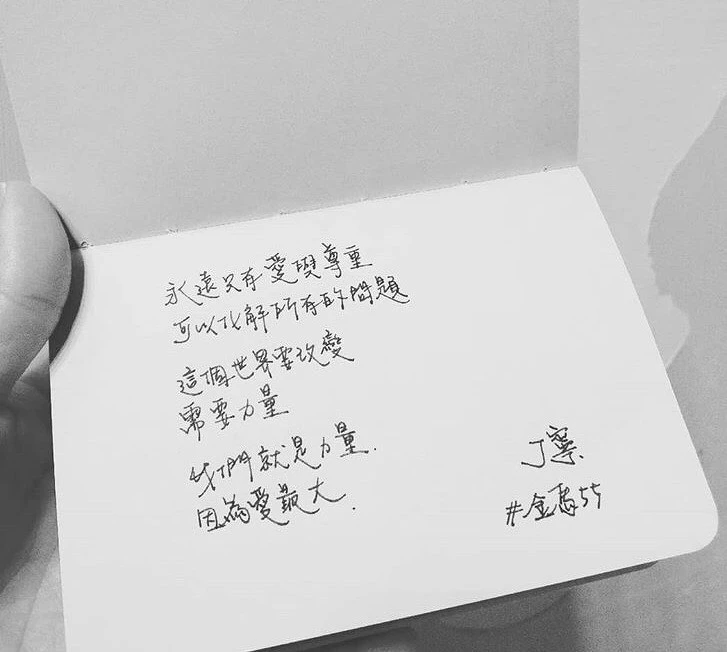 永遠只有愛與尊重
可以化解所有的問題
這個世界要改變
需要力量
我們就是力量.
因為愛最大.
丁寧
#金馬55